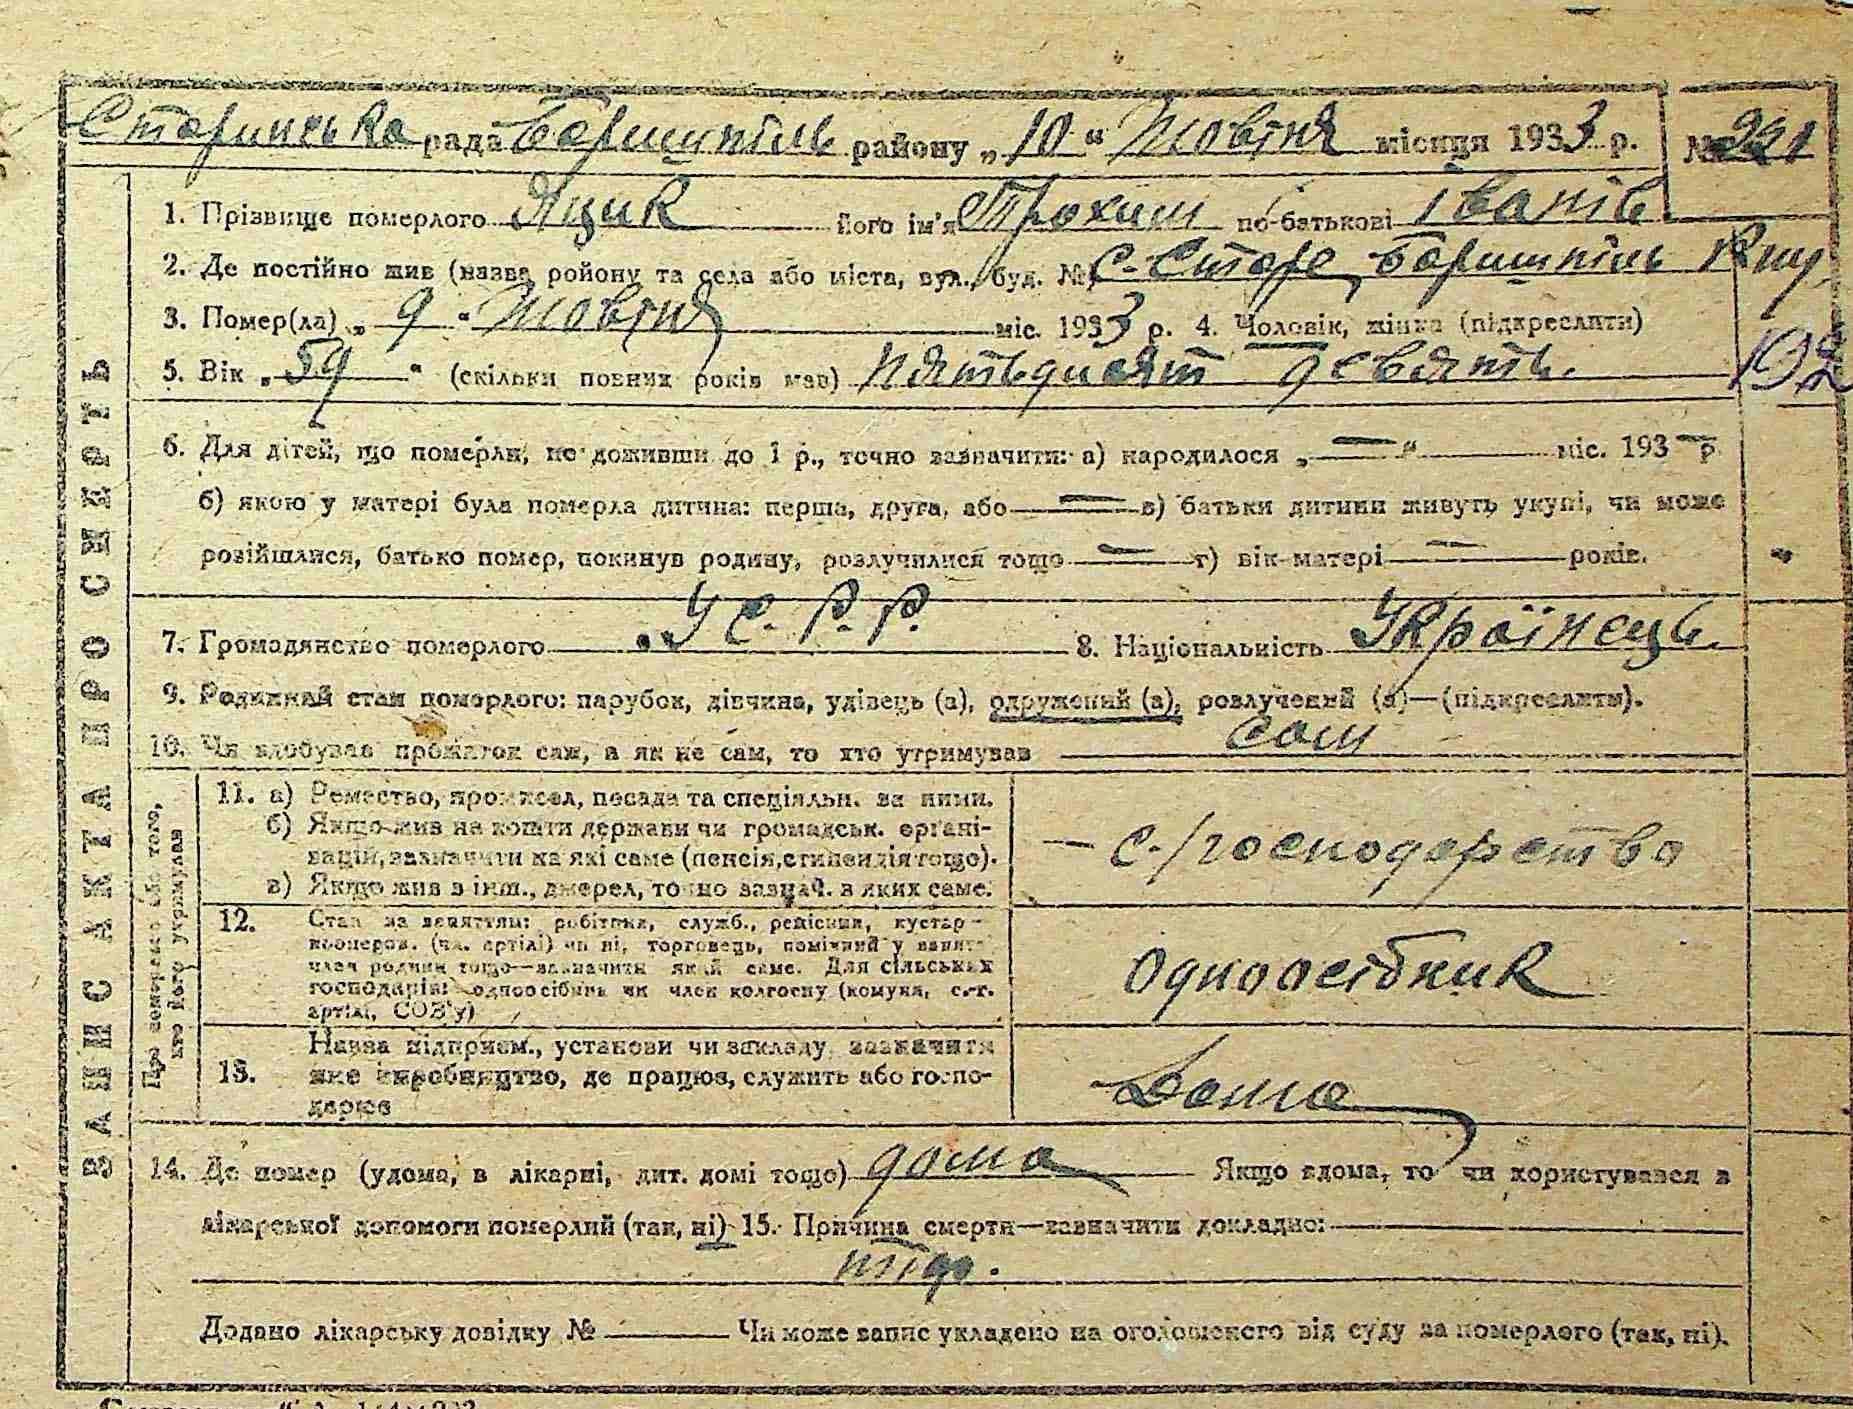 Старинська рада Баришпіль району „10" Жовтня місяця 1933 р. № 221
1. Прізвище померлого Яцик його ім'я Трохим по-батькові Іванів.
2. Де постійно жив (назва ройону та села або міста, вул., буд. №) с. Старе, Баришпіль
3. Помер(ла) „9" Жовтня міс. 1933 р. 4. Чоловік, жінка (підкреслити)
5. Вік „59" (скільки повних років мав) пятьдисят девять.
192
6. Для дітей, що померли, не доживши до 1 р., точно зазначити: а) народилося „—" міс. 193— р.
б) якою у матері була померла дитина: перша, друга, або — в) батьки дитини живуть укупі, чи може
розійшлися, батько помер, покинув родину, розлучилися тощо — г) вік матері — років.
7. Громадянство померлого У С. Р. Р. 8. Національність Українець.
9. Родинний стан померлого: парубок, дівчина, удівець (а), одружений (а), розлучений (а)—(підкреслити).
10. Чи здобував прожиток сам, а як не сам, то хто утримував сам
ЗАПИС АКТА ПРО СМЕРТЬ
Про померлого або того, хто його утримував
11. а) Ремество, промисел, посада та спеціяльн. за ними.
б) Якщо жив на кошти держави чи громадськ. органі-
зацій, зазначити на які саме (пенсія, стипендія тощо).
в) Якщо жив з інш., джерел, точно зазнач. з яких саме.
— с./господарство
12. Стан за заняттям: робітник, служб., ремісник, кустар-
кооперов. (чл. артілі) чи ні, торговець, помічний у занятт.
член родини тощо—зазначити який саме. Для сільських
господарів: одноосібник чи член колгоспу (комуни, с.-г.
артілі, СОЗ'у)
Одноосібник
13. Назва підприєм., установи чи закладу, зазначити
яке виробництво, де працює, служить або госпо-
дарює
Дома
14. Де помер (удома, в лікарні, дит. домі тощо) дома Якщо вдома, то чи користувався з
лікарської допомоги померлий (так, ні) 15. Причина смерти—зазначити докладно:
Додано лікарську довідку № — Чи може запис укладено на оголошеного від суду за померлого (так, ні).